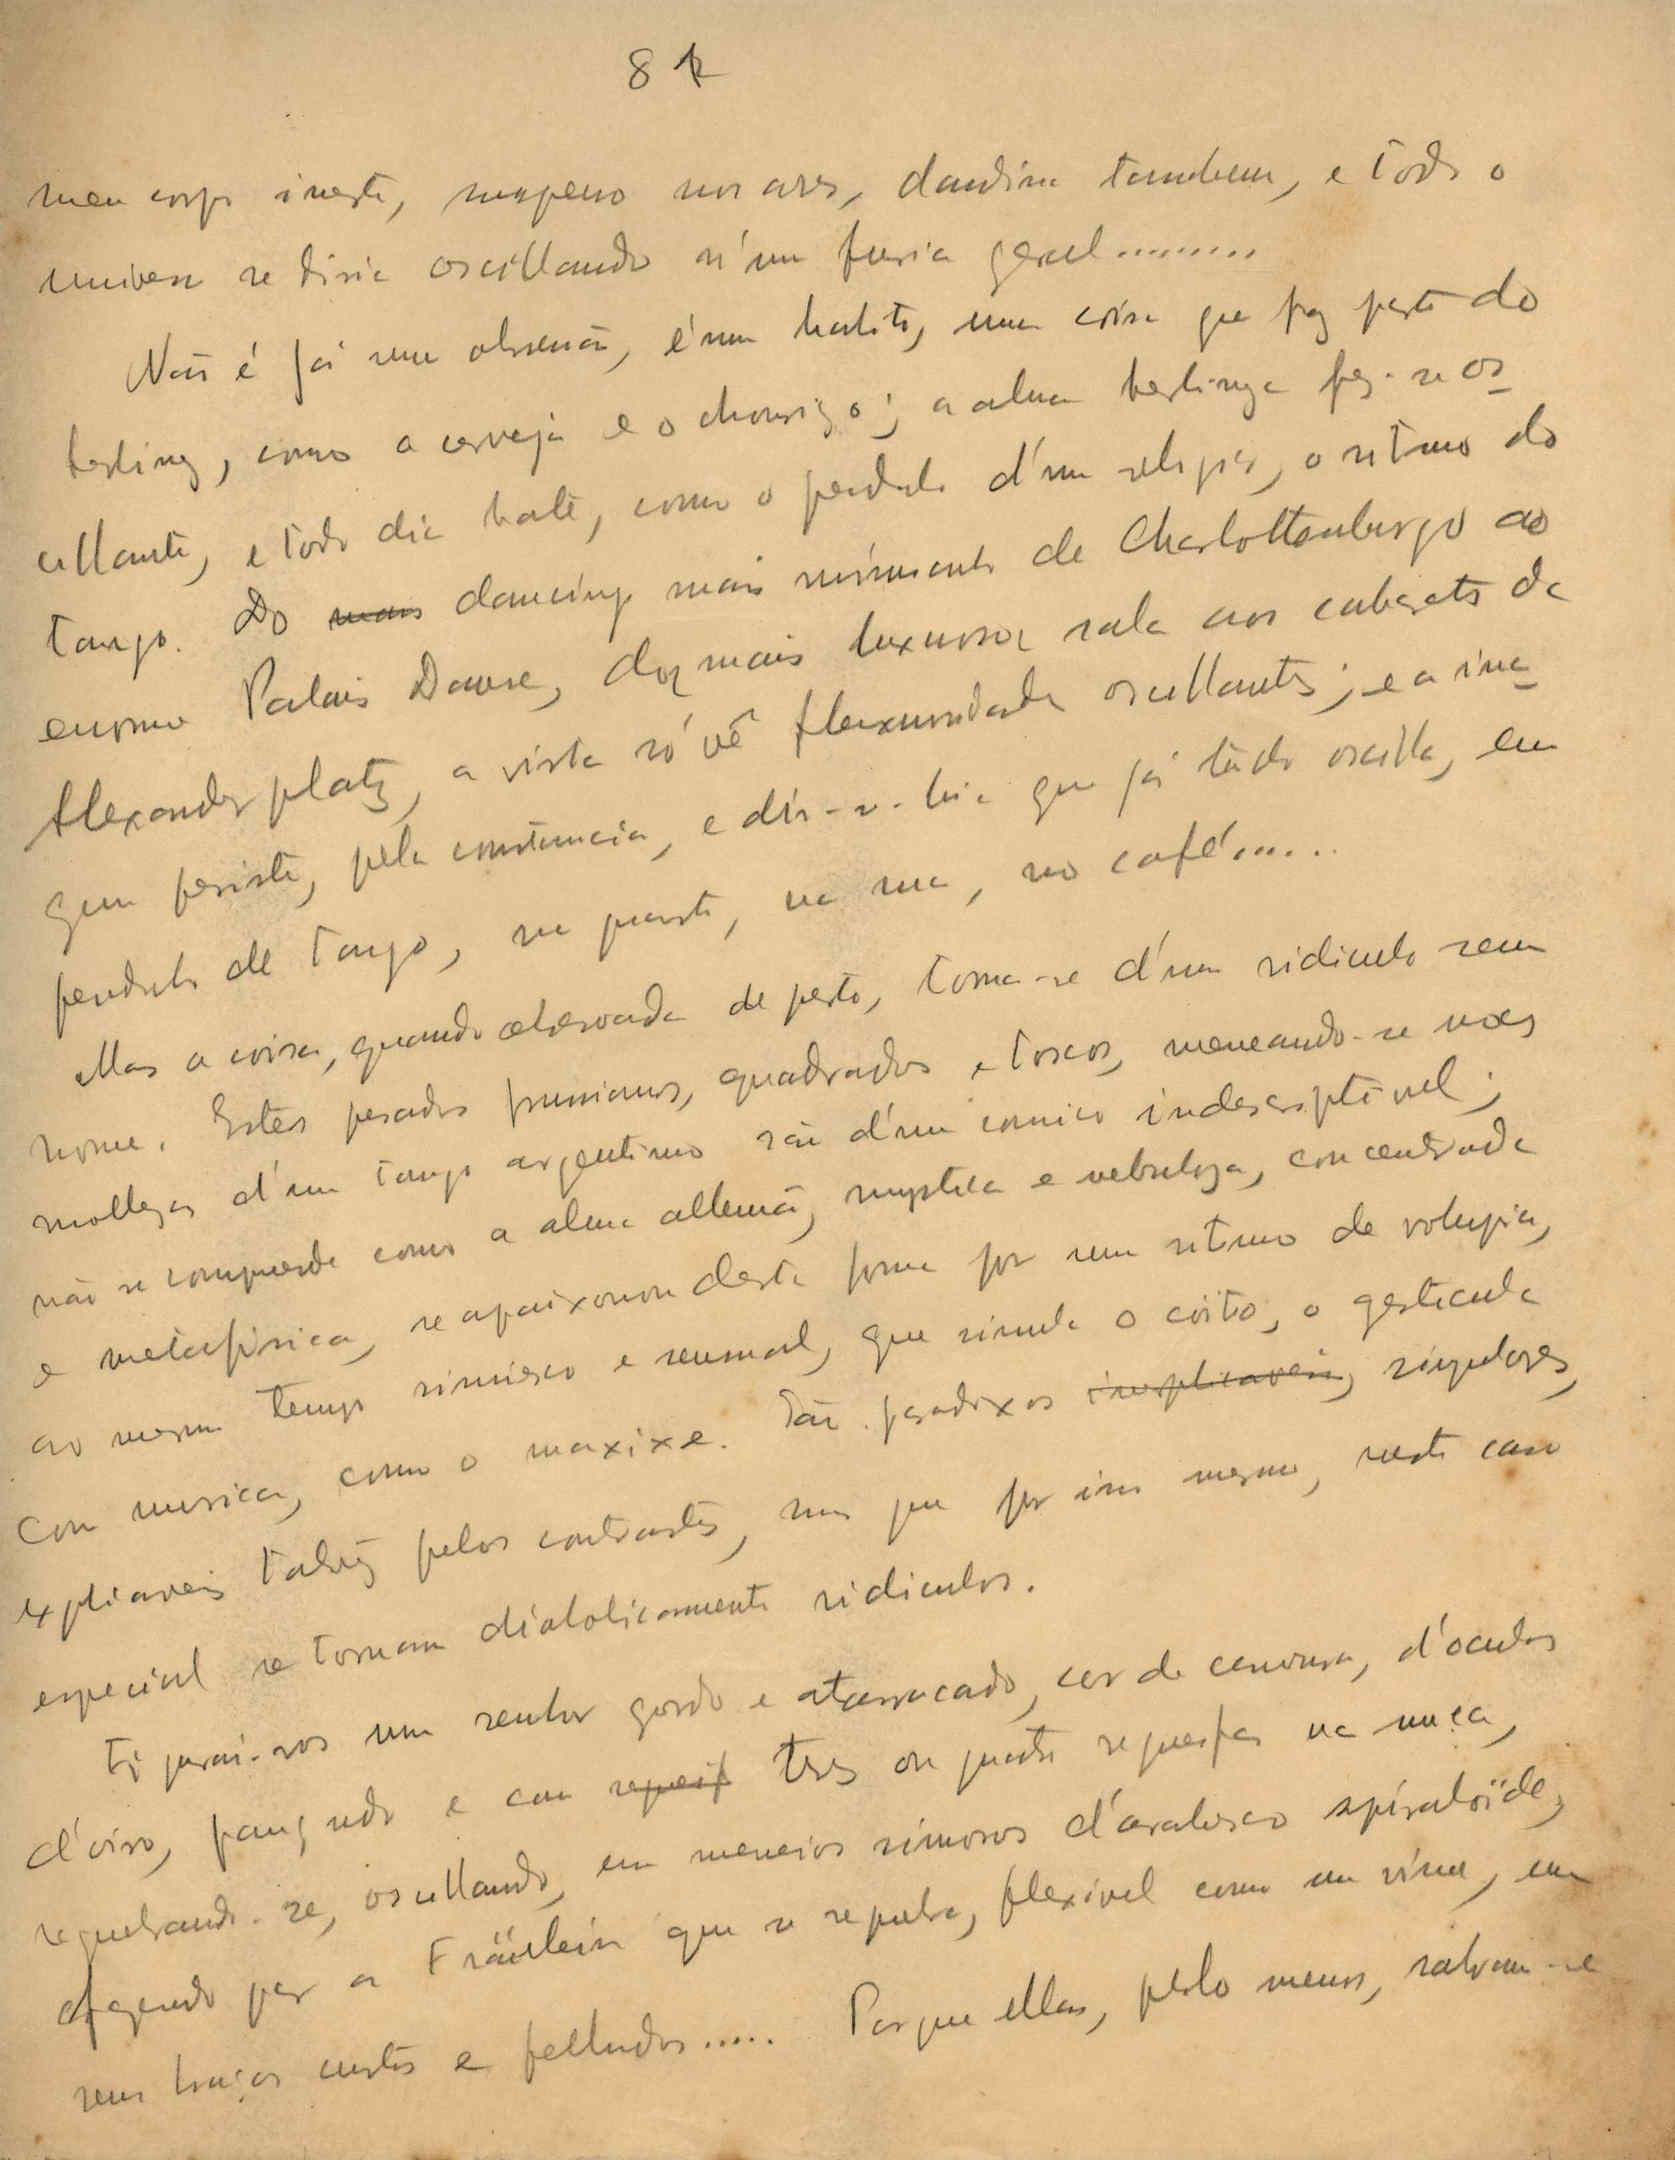 8
meu corpo inerte, suspenso nos ares, dandina tambem, e todo o
universo se diria oscillando n'um furia geral.........
Não é já uma obsessão, é um habito, uma coisa que faz parte do
berlinez, como a cerveja e o chouriço; a alma berlineza fez-se os-
cillante, e todo dia bate, como o pendulo d'um relogio, o ritmo do
tango. Do mais dancing mais insinuante de Charlottenburgo ao
enorme Palais Danse, da mais luxuosa sala aos cabarets da
Alexander platz, a vista só vê flexuosidades oscillantes; e a ima-
gem persiste, pela constancia, e dir-se-hia que já tudo oscilla, em
pendulo de tango, no quarto, na rua, no café......
Mas a coisa, quando observada de perto, torna-se d'um ridiculo sem
nome. Estes pesados prussianos, quadrados e toscos, meneando-se nas
mollezas d'um tango argentino são d'um comico indescriptivel;
não se comprende como a alma allemã, mystica e nebuloza, concentrada
e metafisica, se apaixonou desta forma por um ritmo de volupia,
ao mesmo tempo simiesco e sensual, que simula o coito, o gesticula
com musica, como o maxixe. São paradoxos inexplicaveis, singulares,
explicaveis talvez pelos contrastes, mas que por isso mesmo, neste caso
especial se tornam diabolicamente ridiculos.
Figurai-vos um senhor gordo e atarracado, cor de cenoura, d'oculos
d'oiro, pançudo e com repeif tres ou quatro reguefas na nuca,
requebrando-se, oscillando, em meneios sinuosos d'arabesco spiraloïde,
e fazendo par a Fräulein que se requebra, flexivel como um vime, em
seus braços curtos e felludos..... Porque ellas, pelo menos, salvam-se